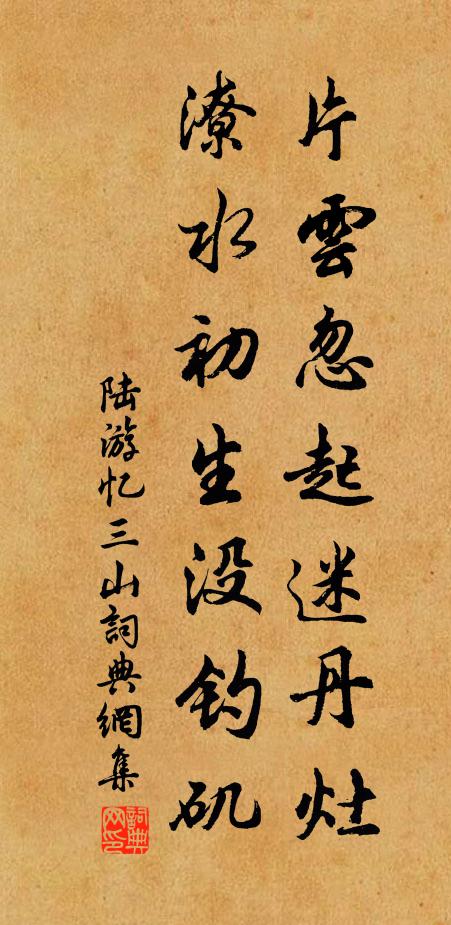 片雲忽起迷丹灶
潦水初生没钓矶
陆游忆三山詞典網集
詞典网印